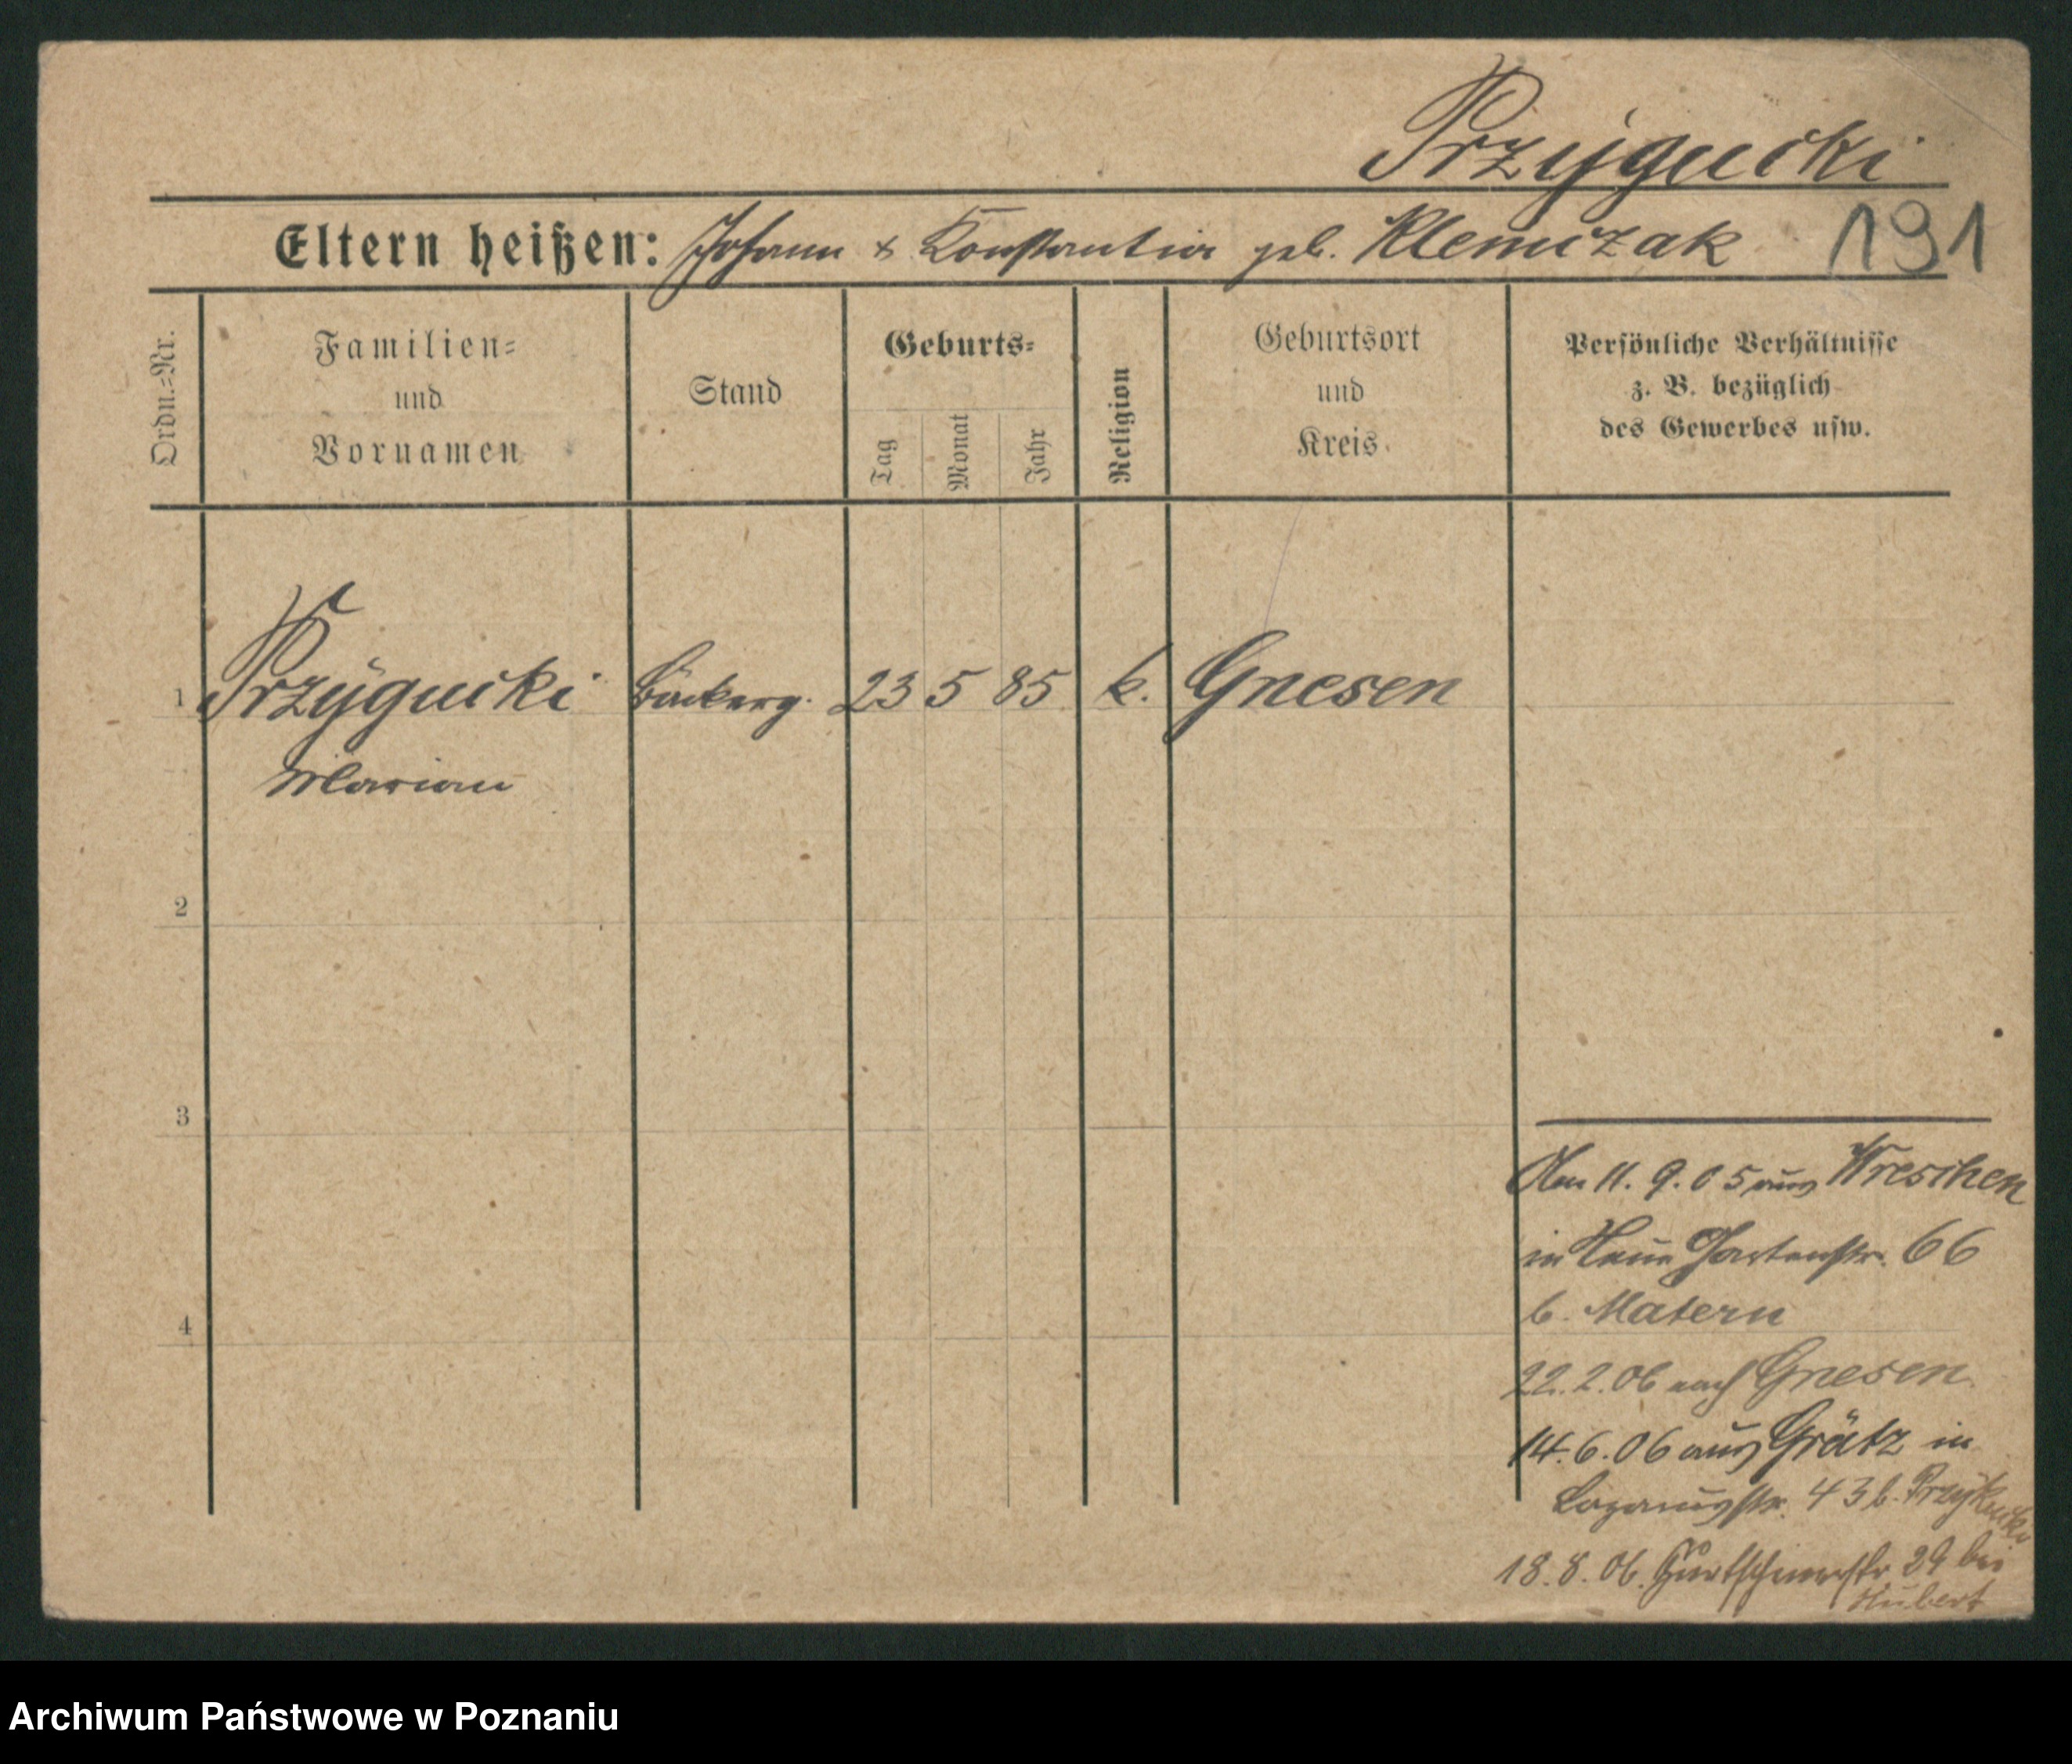 Przygucki
Eltern heißen: Johann & Konstantia geb. Klemczak 191
Ordn.-Nr.
Familien-
und
Vornamen
Stand
Geburts-
Tag
Monat
Jahr
Religion
Geburtsort
und
Kreis
Persönliche Verhältnisse
z. B. bezüglich
des Gewerbes usw.
1 Przygucki Bäckerg. 23 5 85 k. Gnesen
Marian
2
3
4
Am 11. 9. 05 aus Wreschen
in Neue Gartenstr. 66
b. Matern
22. 2. 06 nach Gnesen
14. 6. 06 aus Grätz in
Lazarusstr. 43 b.
18. 8. 06. Gurtschinerstr. 29 bei
Hubert
Archiwum Państwowe w Poznaniu